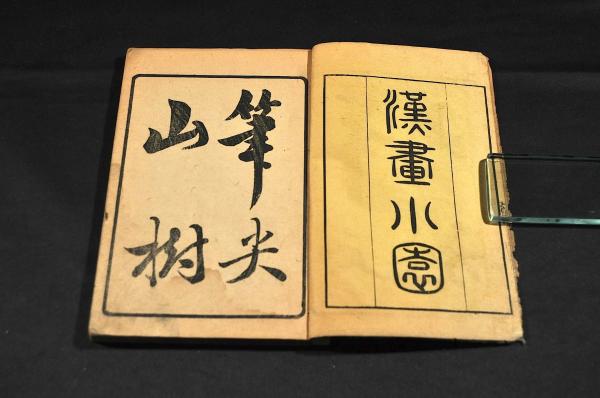 漢畫小園
筆尖
山樹